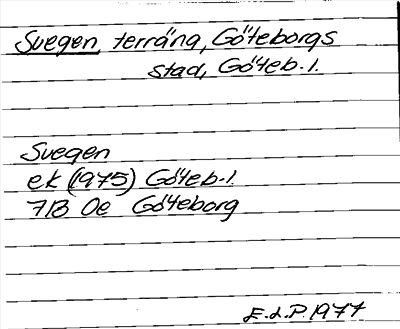 Svegen, terräng, Göteborgs
stad, Göteb. l.
Svegen
ek (1975) Göteb. l.
7B 0e Göteborg
E.L.P. 1977